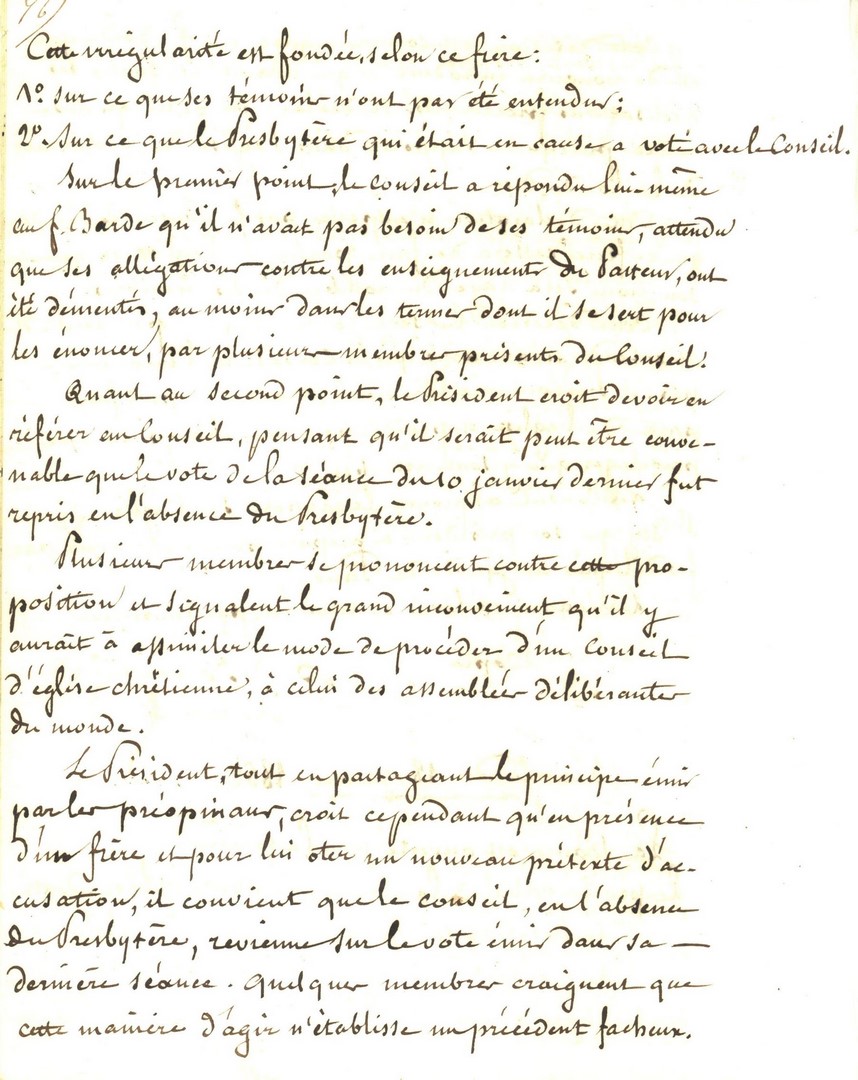 76)
Cette irrégularité est fondée, selon ce frère:
1º. sur ce que ses témoins n'ont pas été entendus;
2º. Sur ce que le Presbytère qui était en cause a voté avec le Conseil.
Sur le premier point, le conseil a répondu lui-même
au f. Barde qu'il n'avait pas besoin de ses témoins, attendu
que ses allégations contre les enseignements du Pasteur, ont
été démentis, au moins dans les termes dont il se sert pour
les énoncer, par plusieurs membres présents du Conseil.
Quant au second point, le Président croit devoir en
référer au Conseil, pensant qu'il serait peut être conve-
nable que le vote de la séance du 10 janvier dernier fut
repris en l'absence du Presbytère.
Plusieurs membres se prononcent contre cette pro-
position et signalent le grand inconvenient qu'il y
aurait à assimiler le mode de procéder d'un Conseil
d'église chrétienne, à celui des assemblées délibérantes
du monde.
Le Président, tout en partageant le principe émis
par les préopinans, croit cependant qu'en présence
d'un frère et pour lui oter un nouveau prétexte d'ac-
cusation, il convient que le conseil, en l'absence
du Presbytère, revienne sur le vote émis dans sa
dernière séance. Quelques membres craignent que
cette manière d'agir n'établisse un précédent facheux.